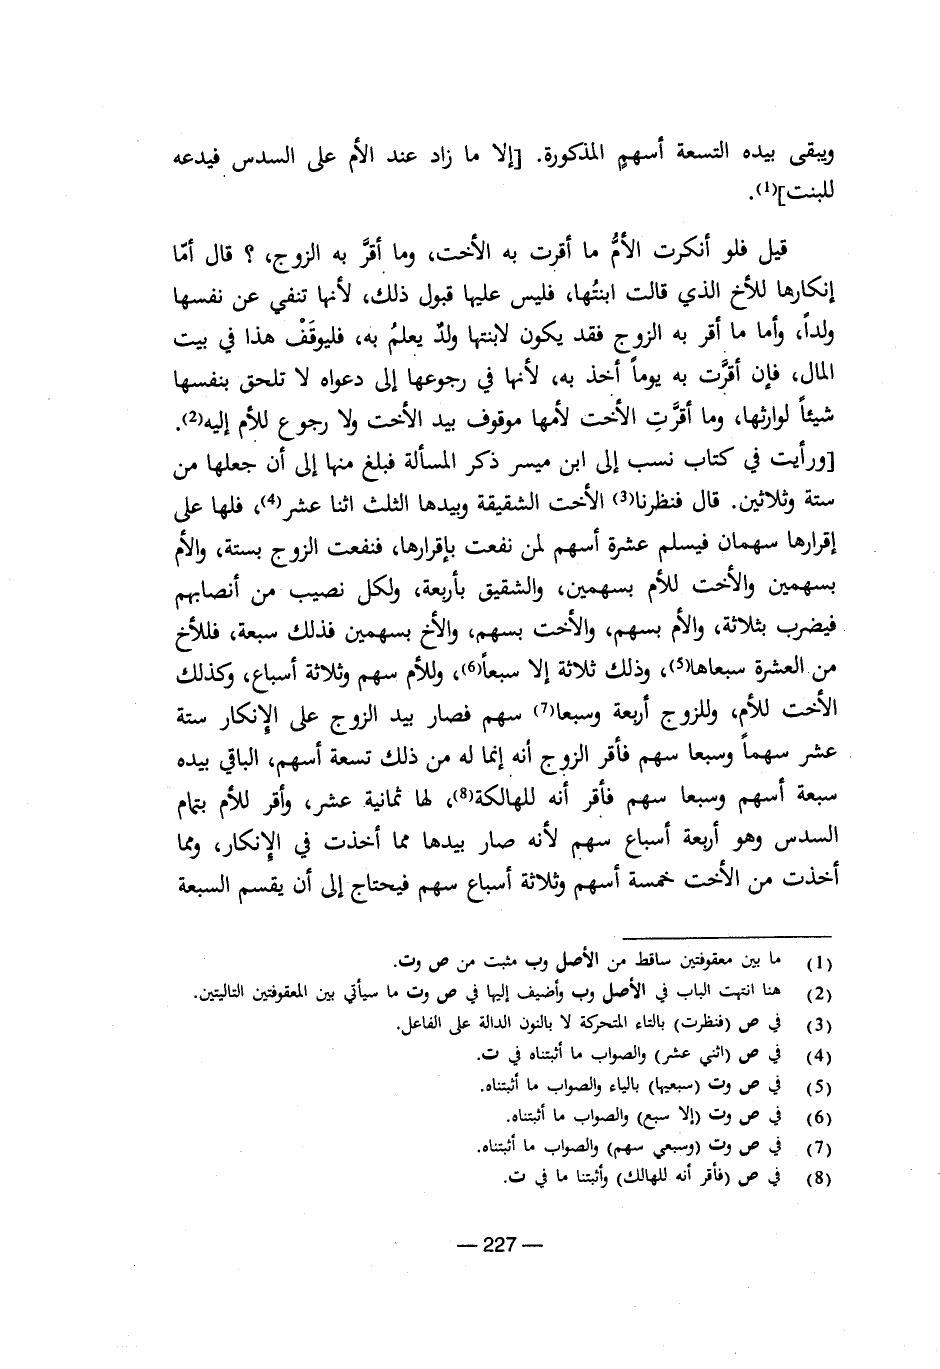 ويبقى بيده التسعة أسهمٍ المذكورة. [إلا ما زاد عند الأم على السدس فيدعه
للبنت](1).
قيل فلو أنكرت الأمُّ ما أقرت به الأخت، وما أقرَّ به الزوج، ؟ قال أمّا
إنكارها للأخ الذي قالت ابنتُها، فليس عليها قبول ذلك، لأنها تنفي عن نفسها
ولداً، وأما ما أقر به الزوج فقد يكون لابنتها ولدٌ يعلمُ به، فليوقَفْ هذا في بيت
المال، فإن أقرَّت به يوماً أخذ به، لأنها في رجوعها إلى دعواه لا تلحق بنفسها
شيئاً لوارثها، وما أقرَّتِ الأخت لأمها موقوف بيد الأخت ولا رجوع للأم إليه(2).
[ورأيت في كتاب نسب إلى ابن ميسر ذكر المسألة فبلغ منها إلى أن جعلها من
ستة وثلاثين. قال فنظرنا(3) الأخت الشقيقة وبيدها الثلث اثنا عشر(4)، فلها على
إقرارها سهمان فيسلم عشرة أسهم لمن نفعت بإقرارها، فنفعت الزوج بستة، والأم
بسهمين والأخت للأم بسهمين، والشقيق بأربعة، ولكل نصيب من أنصابهم
فيضرب بثلاثة، والأم بسهم، والأخت بسهم، والأخ بسهمين فذلك سبعة، فللأخ
من العشرة سبعاها(5)، وذلك ثلاثة إلا سبعاً(6)، وللأم سهم وثلاثة أسباع، وكذلك
الأخت للأم، وللزوج أربعة وسبعا(7) سهم فصار بيد الزوج على الإنكار ستة
عشر سهماً وسبعا سهم فأقر الزوج أنه إنما له من ذلك تسعة أسهم، الباقي بيده
سبعة أسهم وسبعا سهم فأقر أنه للهالكة(8)، لها ثمانية عشر، وأقر للأم بتمام
السدس وهو أربعة أسباع سهم لأنه صار بيدها مما أخذت في الإنكار، ومما
أخذت من الأخت خمسة أسهم وثلاثة أسباع سهم فيحتاج إلى أن يقسم السبعة
(1) ما بين معقوفتين ساقط من الأصل وب مثبت من ص وت.
(2) هنا انتهت الباب في الأصل وب وأضيف إليها في ص وت ما سيأتي بين المعقوفتين التاليتين.
(3) في ص (فنظرت) بالتاء المتحركة لا بالنون الدالة على الفاعل.
(4) في ص (اثني عشر) والصواب ما أثبتناه في ت.
(5) في ص وت (سبعيها) بالياء والصواب ما أثبتناه.
(6) في ص وت (إلا سبع) والصواب ما أثبتناه.
(7) في ص وت (وسبعي سهم) والصواب ما أثبتناه.
(8) في ص (فأقر أنه للهالك) وأثبتنا ما في ت.
— 227 —